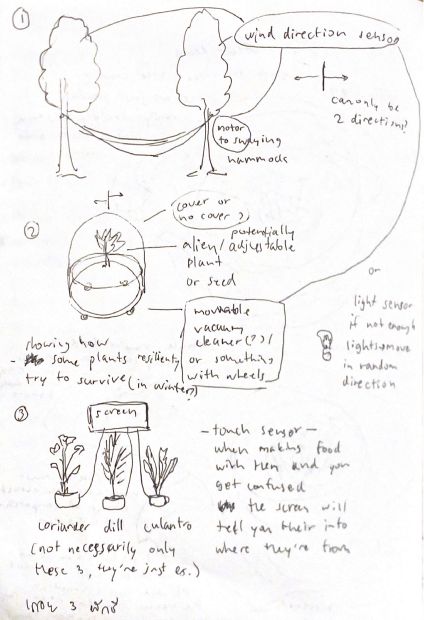 1
wind direction sensor
can only be
2 directions?
motor
to swaying
hammock
2
cover or
no cover?
potentially
alien/adjustable
plant
or seed
movable
vacuum
cleaner(?)/
or something
with wheels
or
light sensor
if not enough
light→move
in random
direction
showing how
- some plants resiliently
try to survive (in winter?)
3
screen
coriander dill culantro
(not necessarily only
these 3, they're just ex.)
- touch sensor -
when making food
with them and you
get confused
the screen will
tell you their info
where they're from
3 ผักชี